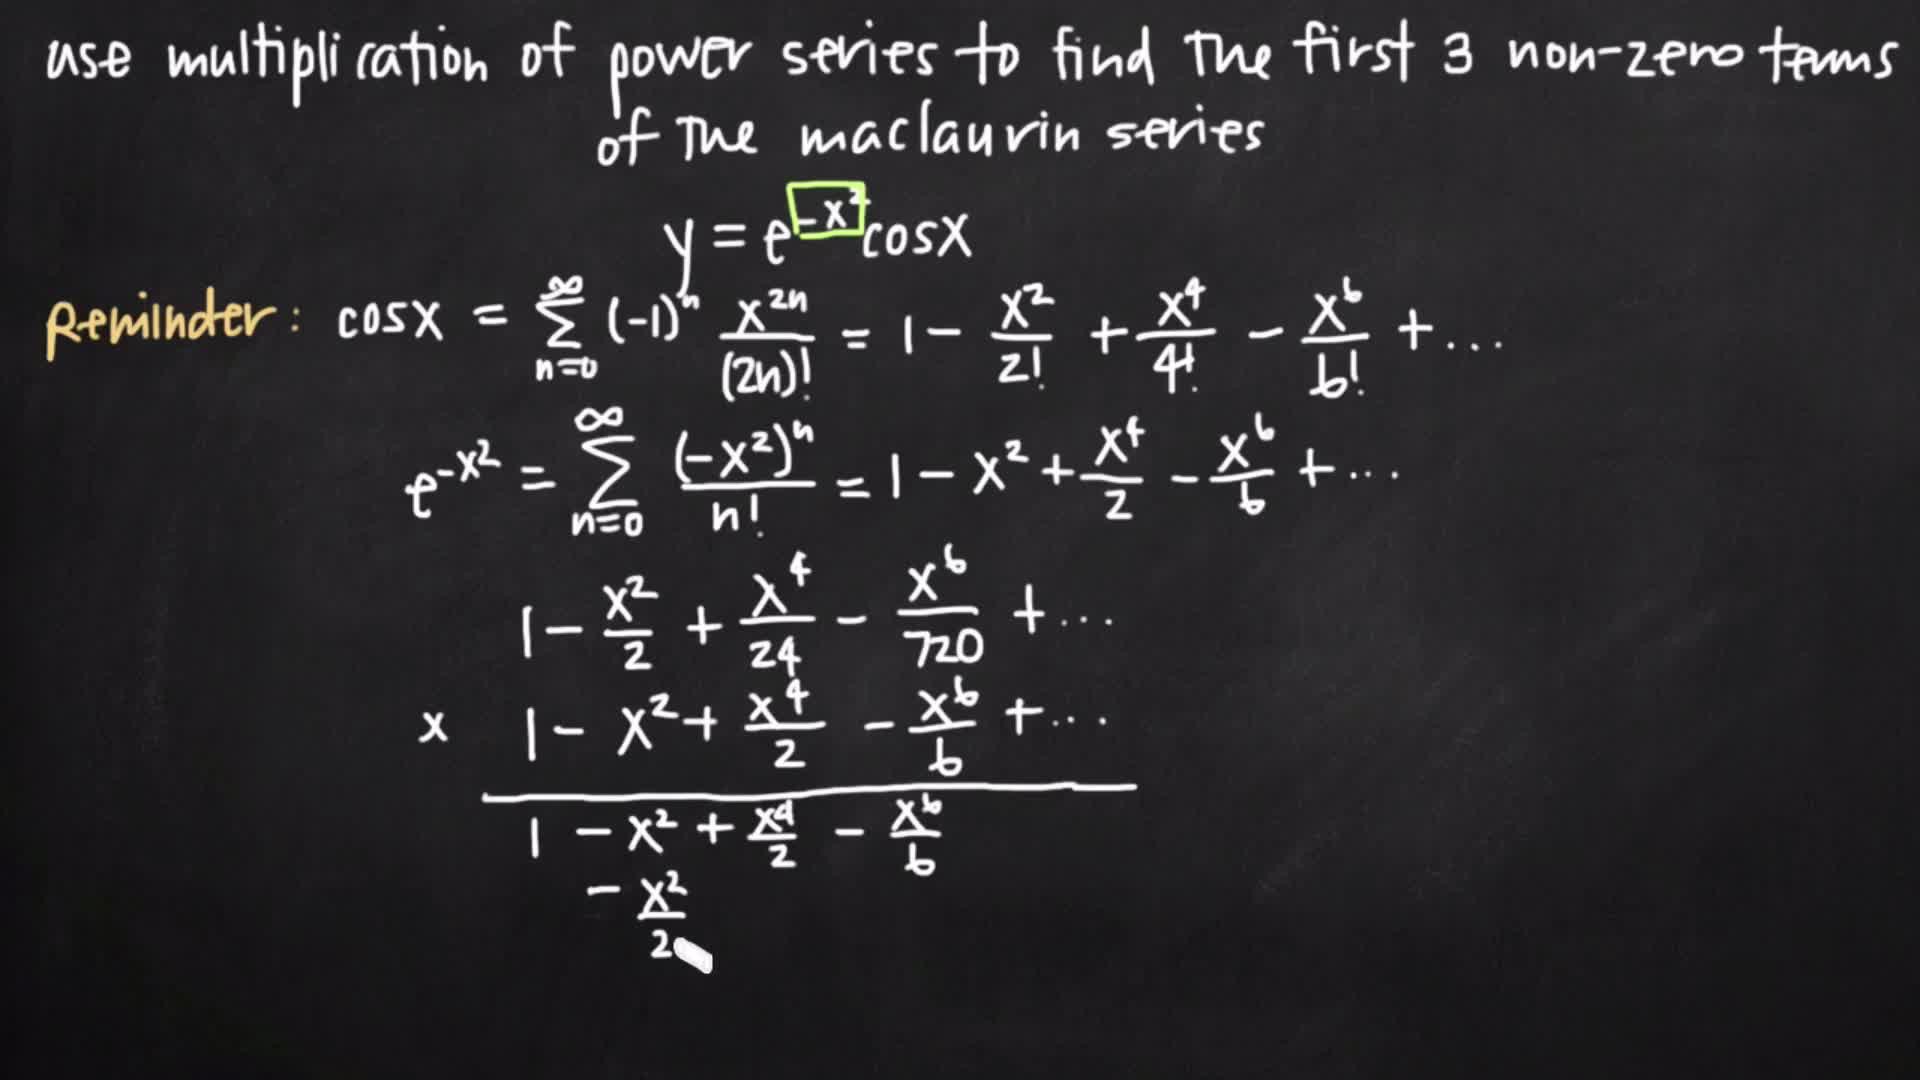 use multiplication of power series to find the first 3 non-zero terms
of the maclaurin series
y = e^{-x^2} cosx
Reminder: cosx = ∑_{n=0}^{∞} (-1)^n x^{2n}/(2n)! = 1 - x^2/2! + x^4/4! - x^6/6! + ...
e^{-x^2} = ∑_{n=0}^{∞} (-x^2)^n/n! = 1 - x^2 + x^4/2 - x^6/6 + ...
1 - x^2/2 + x^4/24 - x^6/720 + ...
x 1 - x^2 + x^4/2 - x^6/6 + ...
1 - x^2 + x^4/2 - x^6/6
- x^2/2